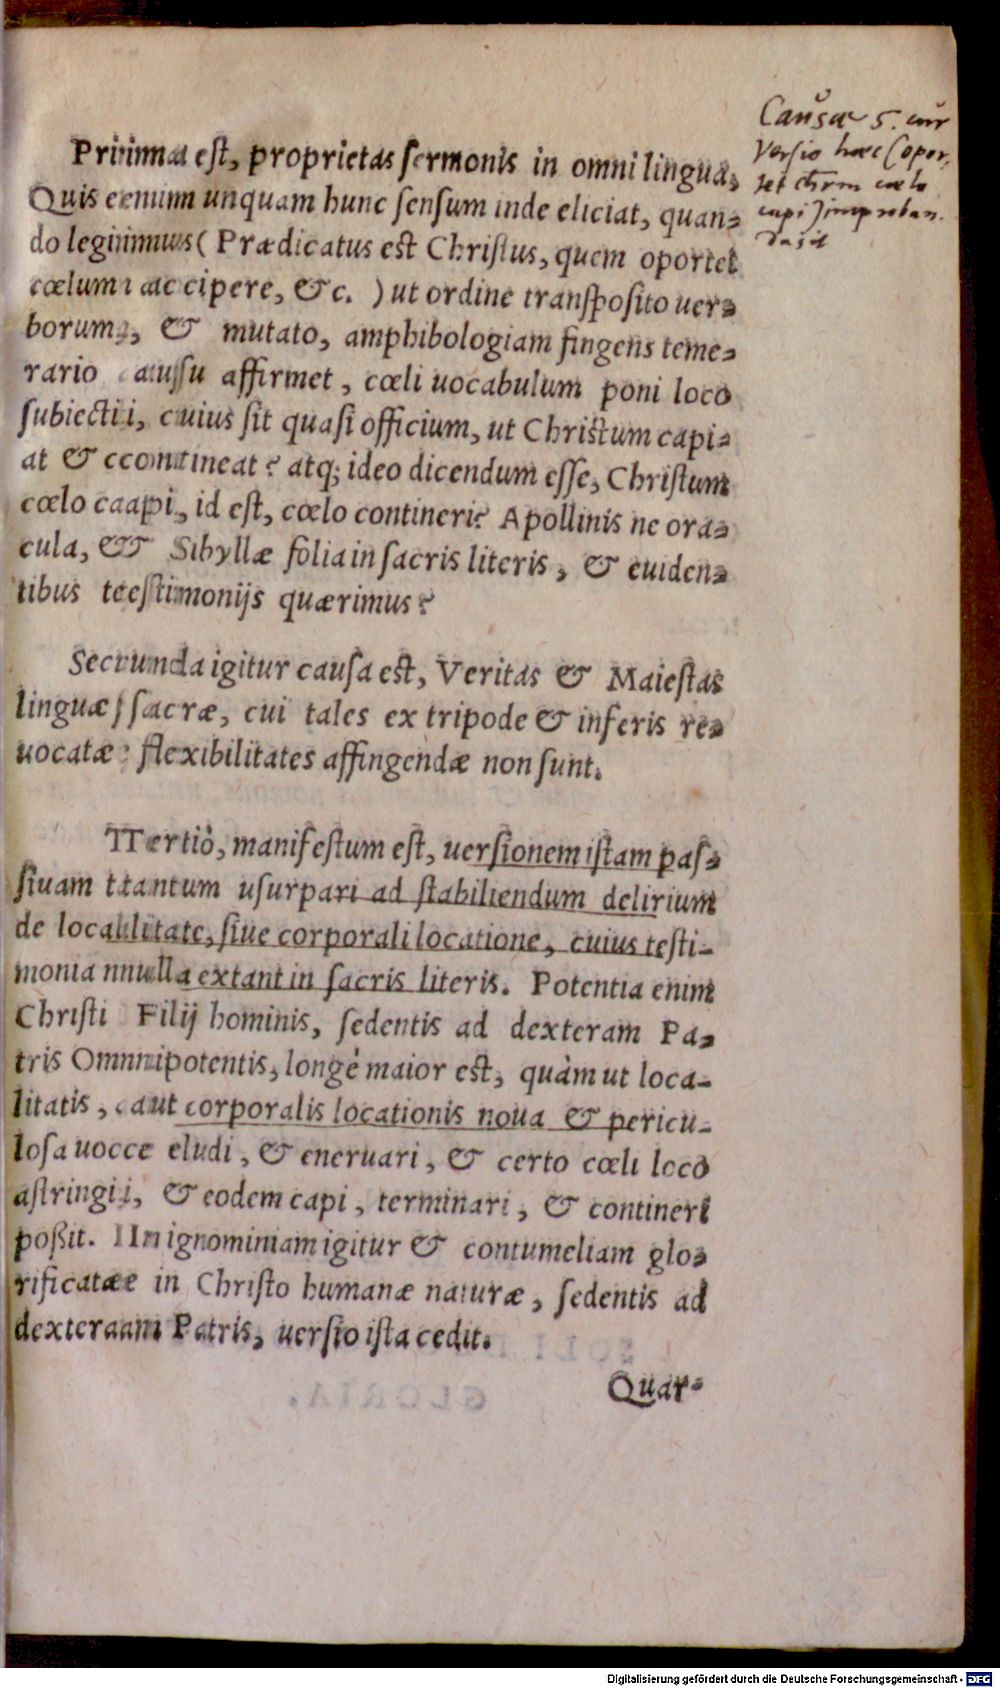 Prima est, proprietas sermonis in omni lingua.
Quis enim unquam hunc sensum inde eliciat, quan-
do legimus ( Prædicatus est Christus, quem oportet
cœlum accipere, &c. ) ut ordine transposito uer-
borum, & mutato, amphibologiam fingens teme-
rario ausu affirmet, cœli uocabulum poni loco
subiecti, cuius sit quasi officium, ut Christum capi-
at & contineat? atq; ideo dicendum esse, Christum
cœlo capi, id est, cœlo contineri? Apollinis ne ora-
cula, & Sibyllæ folia in sacris literis, & euiden-
tibus testimonijs quærimus?
Secunda igitur causa est, Veritas & Maiestas
linguæ sacræ, cui tales ex tripode & inferis re-
uocatæ flexibilitates affingendæ non sunt.
Tertiò, manifestum est, uersionem istam pas-
siuam tantum usurpari ad stabiliendum delirium
de localitate, siue corporali locatione, cuius testi-
monia nulla extant in sacris literis. Potentia enim
Christi Filij hominis, sedentis ad dexteram Pa-
tris Omnipotentis, longè maior est, quàm ut loca-
litatis, aut corporalis locationis noua & pericu-
losa uoce eludi, & eneruari, & certo cœli loco
astringi, & eodem capi, terminari, & contineri
poßit. In ignominiam igitur & contumeliam glo-
rificatæ in Christo humanæ naturæ, sedentis ad
dexteram Patris, uersio ista cedit.
Quar-
Causæ 5. cur
Versio hæc (opor-
tet chrm cœlo
capi) improban-
da sit
Digitalisierung gefördert durch die Deutsche Forschungsgemeinschaft - DFG